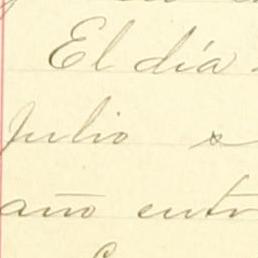 El día
Julio s
año entr